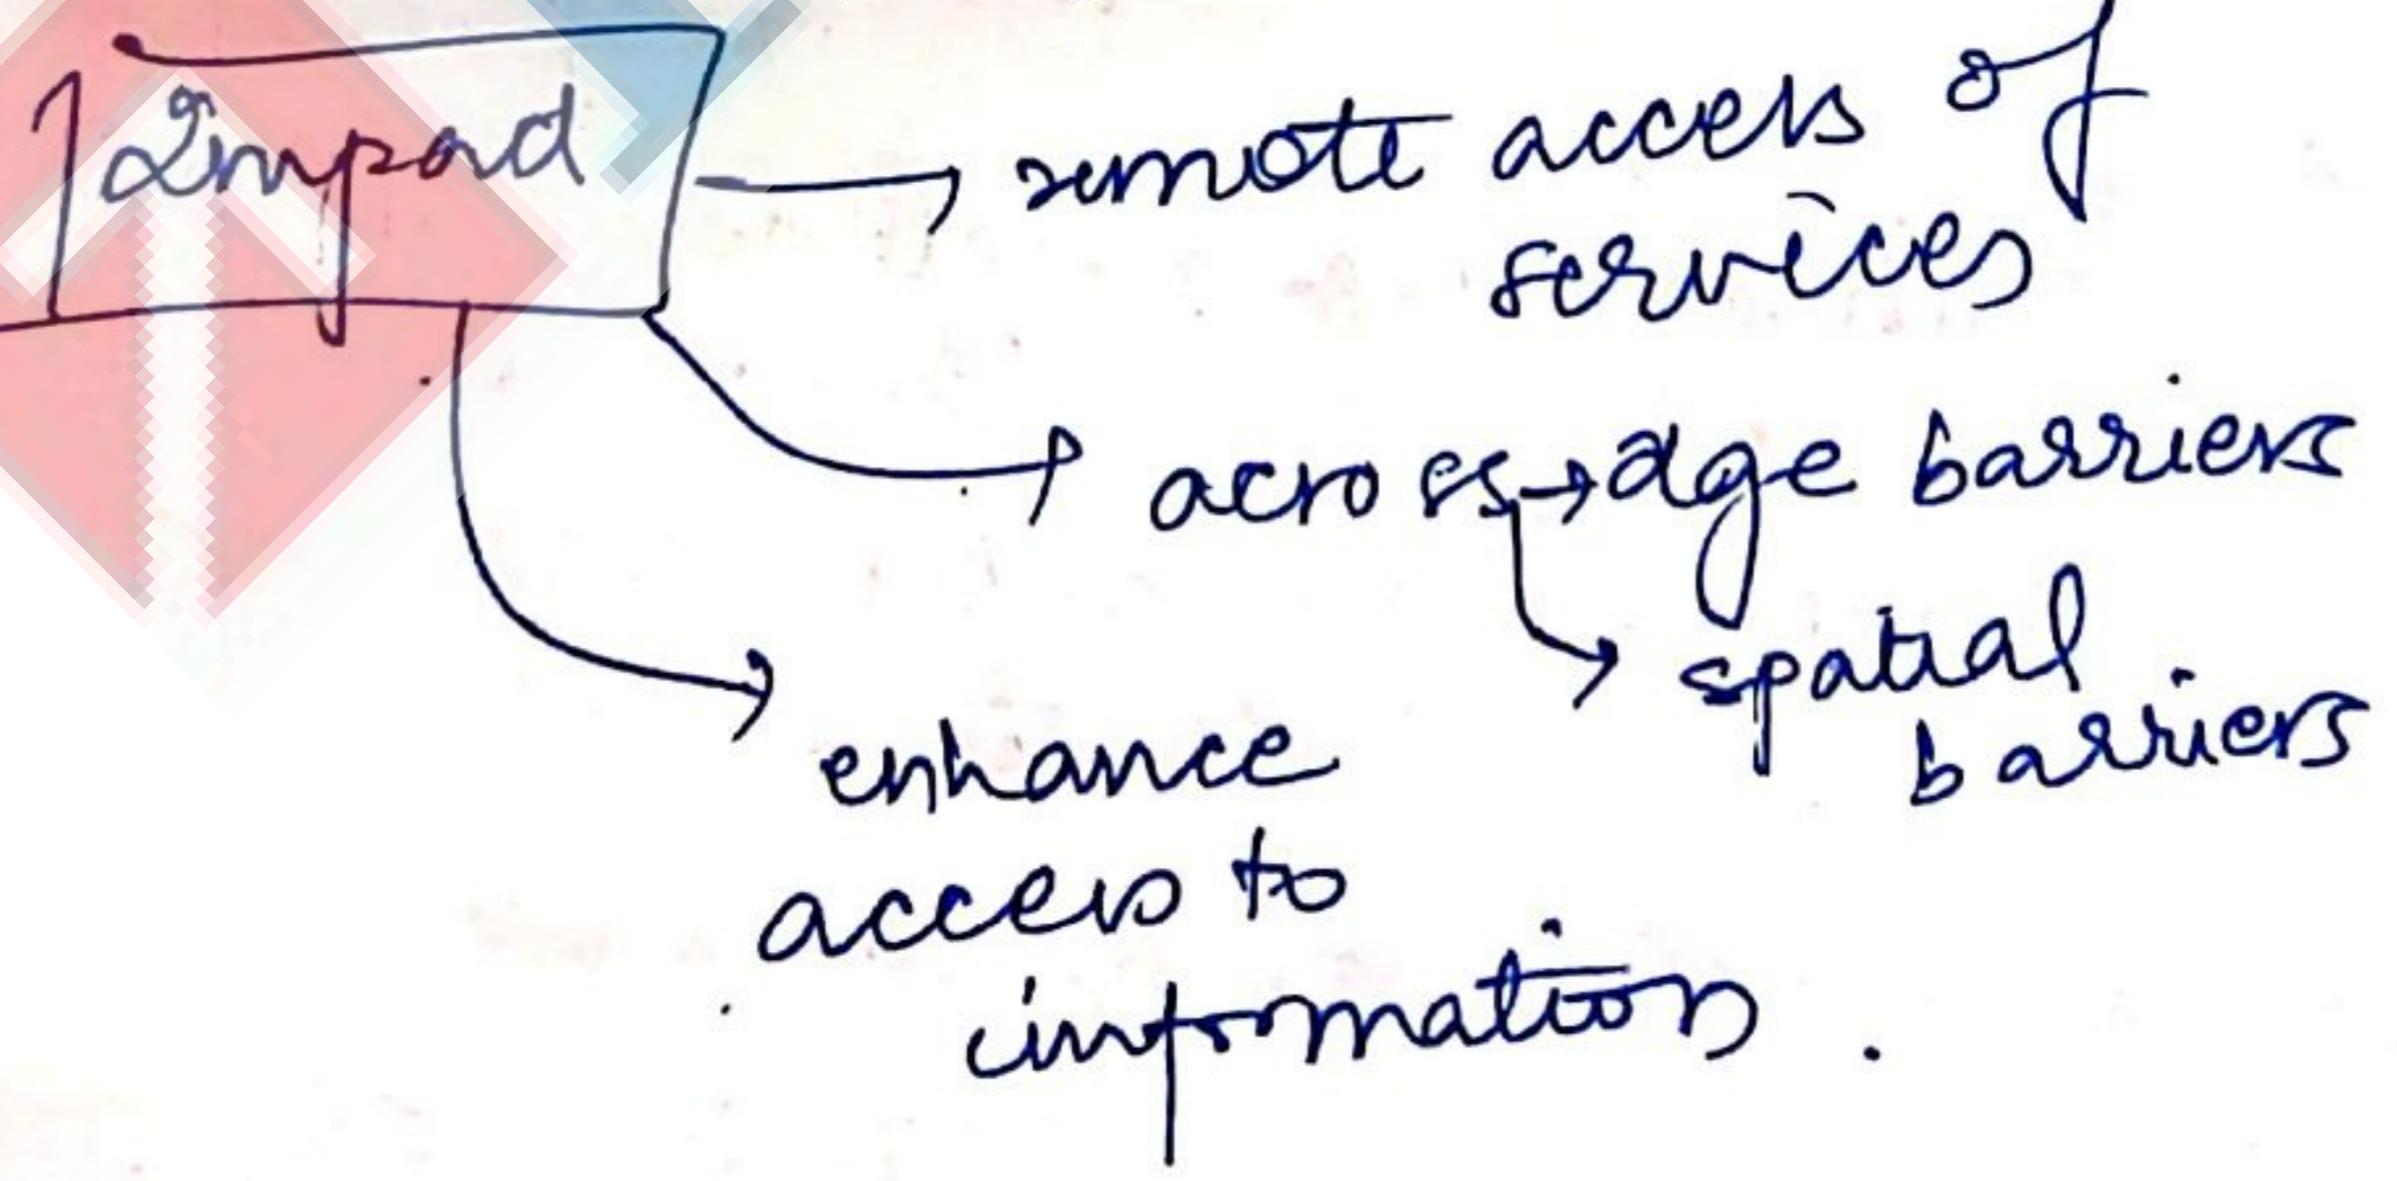 Impact
remote access of
services
across → age barriers
spatial
barriers
enhance
access to
information.